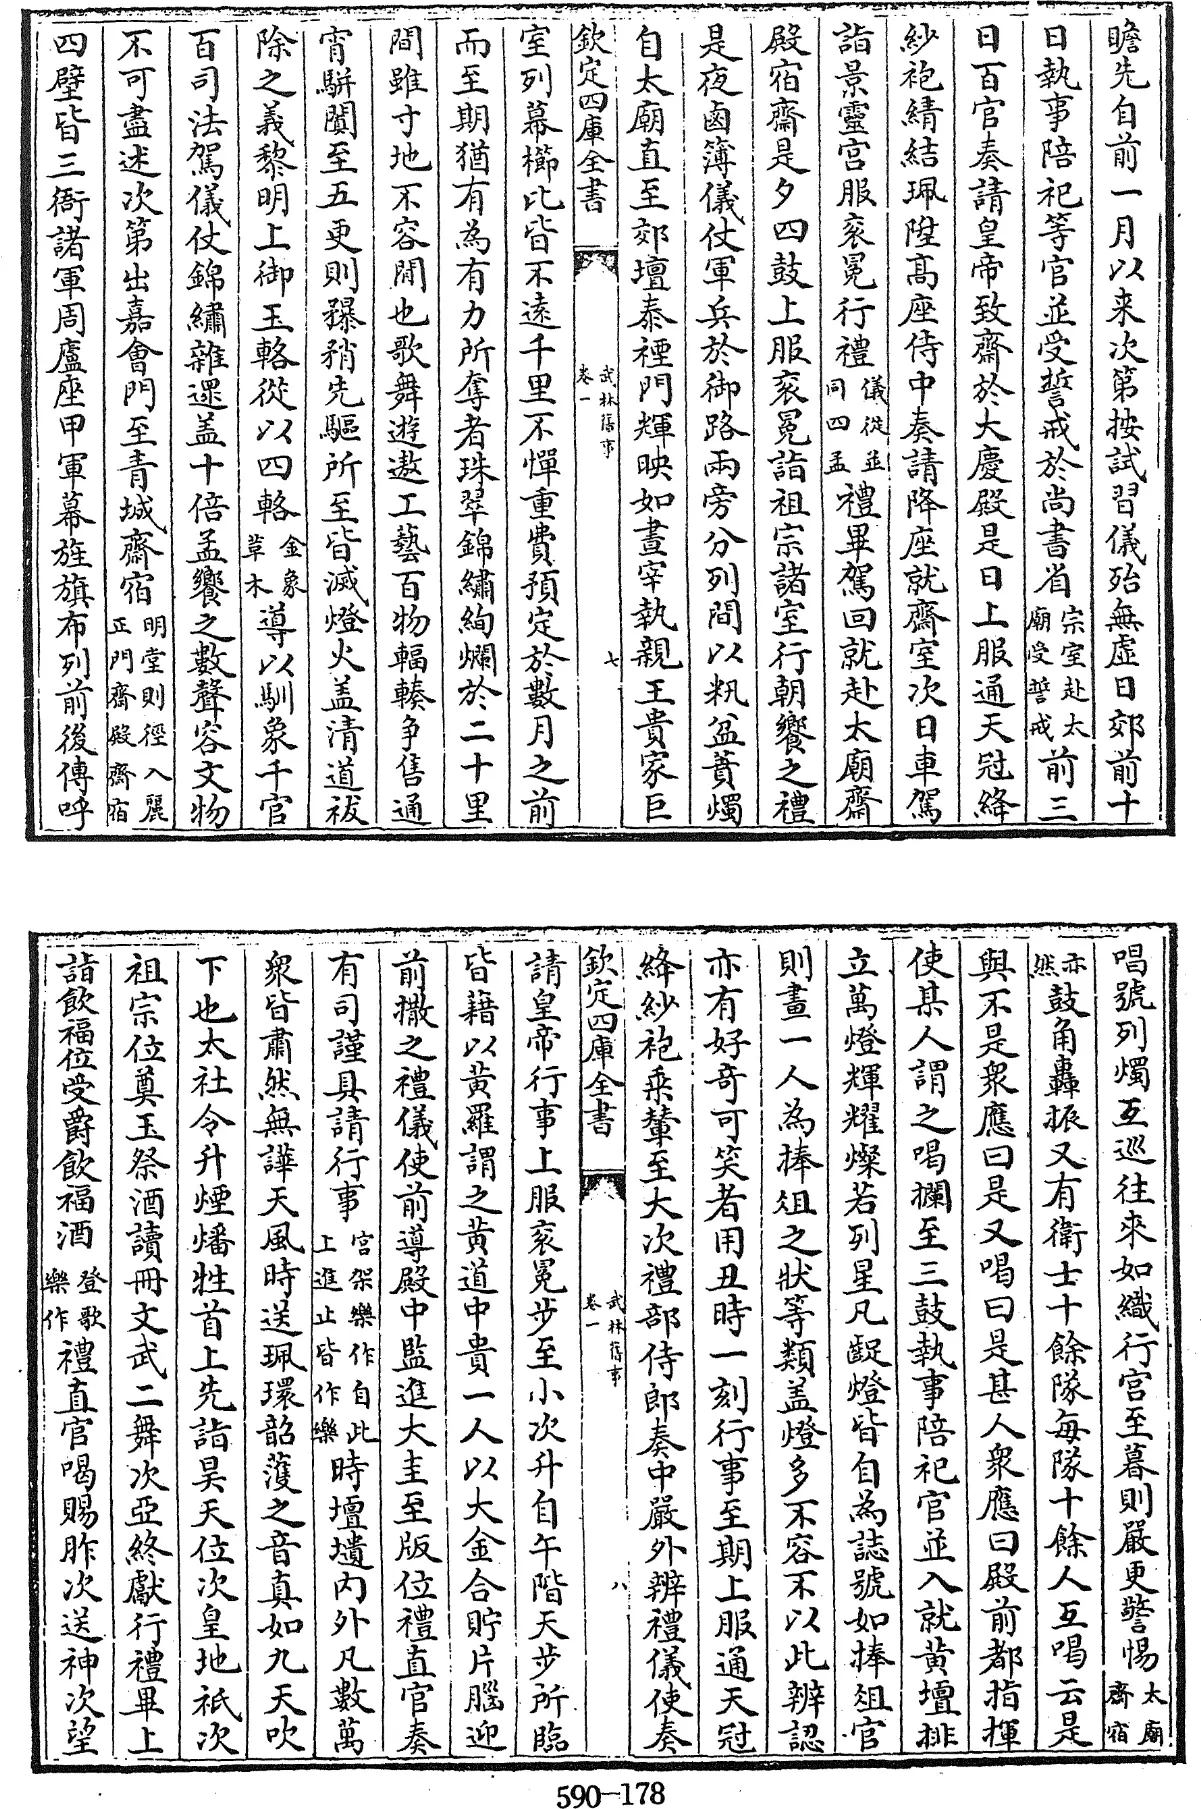 瞻先自前一月以来次第按試習儀殆無虚日郊前十
日執事陪祀等官並受誓戒於尚書省宗室赴太廟受誓戒前三
日百官奏請皇帝致齋於大慶殿是日上服通天冠絳
紗袍綪結珮陞髙座侍中奏請降座就齋室次日車駕
詣景靈宫服衮冕行禮儀從並同四孟禮畢駕回就赴太廟齋
殿宿齋是夕四鼓上服衮冕詣祖宗諸室行朝饗之禮
是夜鹵簿儀仗軍兵於御路兩旁分列間以籸盆蕡燭
自太廟直至郊壇泰禋門輝映如晝宰執親王貴家巨
欽定四庫全書
武林舊事
卷一
七
室列幕櫛比皆不逺千里不憚重費預定於數月之前
而至期猶有為有力所奪者珠翠錦繡絢爛於二十里
間雖寸地不容閒也歌舞遊遨工藝百物輻輳争售通
宵駢闐至五更則䂎矟先驅所至皆滅燈火盖清道祓
除之義黎明上御玉輅從以四輅金象革木導以馴象千官
百司法駕儀仗錦繡雜遝盖十倍孟饗之數聲容文物
不可盡述次第出嘉會門至青城齋宿明堂則徑入麗正門齋殿齋宿
四壁皆三衙諸軍周廬座甲軍幕旌旗布列前後傳呼
唱號列燭互巡往來如織行宫至暮則嚴更警惕太廟齋宿
亦然鼓角轟振又有衛士十餘隊每隊十餘人互喝云是
與不是衆應曰是又喝曰是甚人衆應曰殿前都指揮
使某人謂之喝攔至三鼓執事陪祀官並入就黄壇排
立萬燈輝耀燦若列星凡凝燈皆自為誌號如捧俎官
則畫一人為捧俎之狀等類盖燈多不容不以此辨認
亦有好奇可笑者用丑時一刻行事至期上服通天冠
絳紗袍乗輦至大次禮部侍郎奏中嚴外辨禮儀使奏
欽定四庫全書
武林舊事
卷一
八
請皇帝行事上服衮冕步至小次升自午階天步所臨
皆藉以黄羅謂之黄道中貴一人以大金合貯片腦迎
前撒之禮儀使前導殿中監進大圭至版位禮直官奏
有司謹具請行事宫架樂作自此上進止皆作樂時壇壝内外凡數萬
衆皆肅然無譁天風時送珮環韶濩之音真如九天吹
下也太社令升煙燔牲首上先詣昊天位次皇地祇次
祖宗位奠玉祭酒讀冊文武二舞次亞終獻行禮畢上
詣飲福位受爵飲福酒登歌樂作禮直官喝賜胙次送神次望
590-178